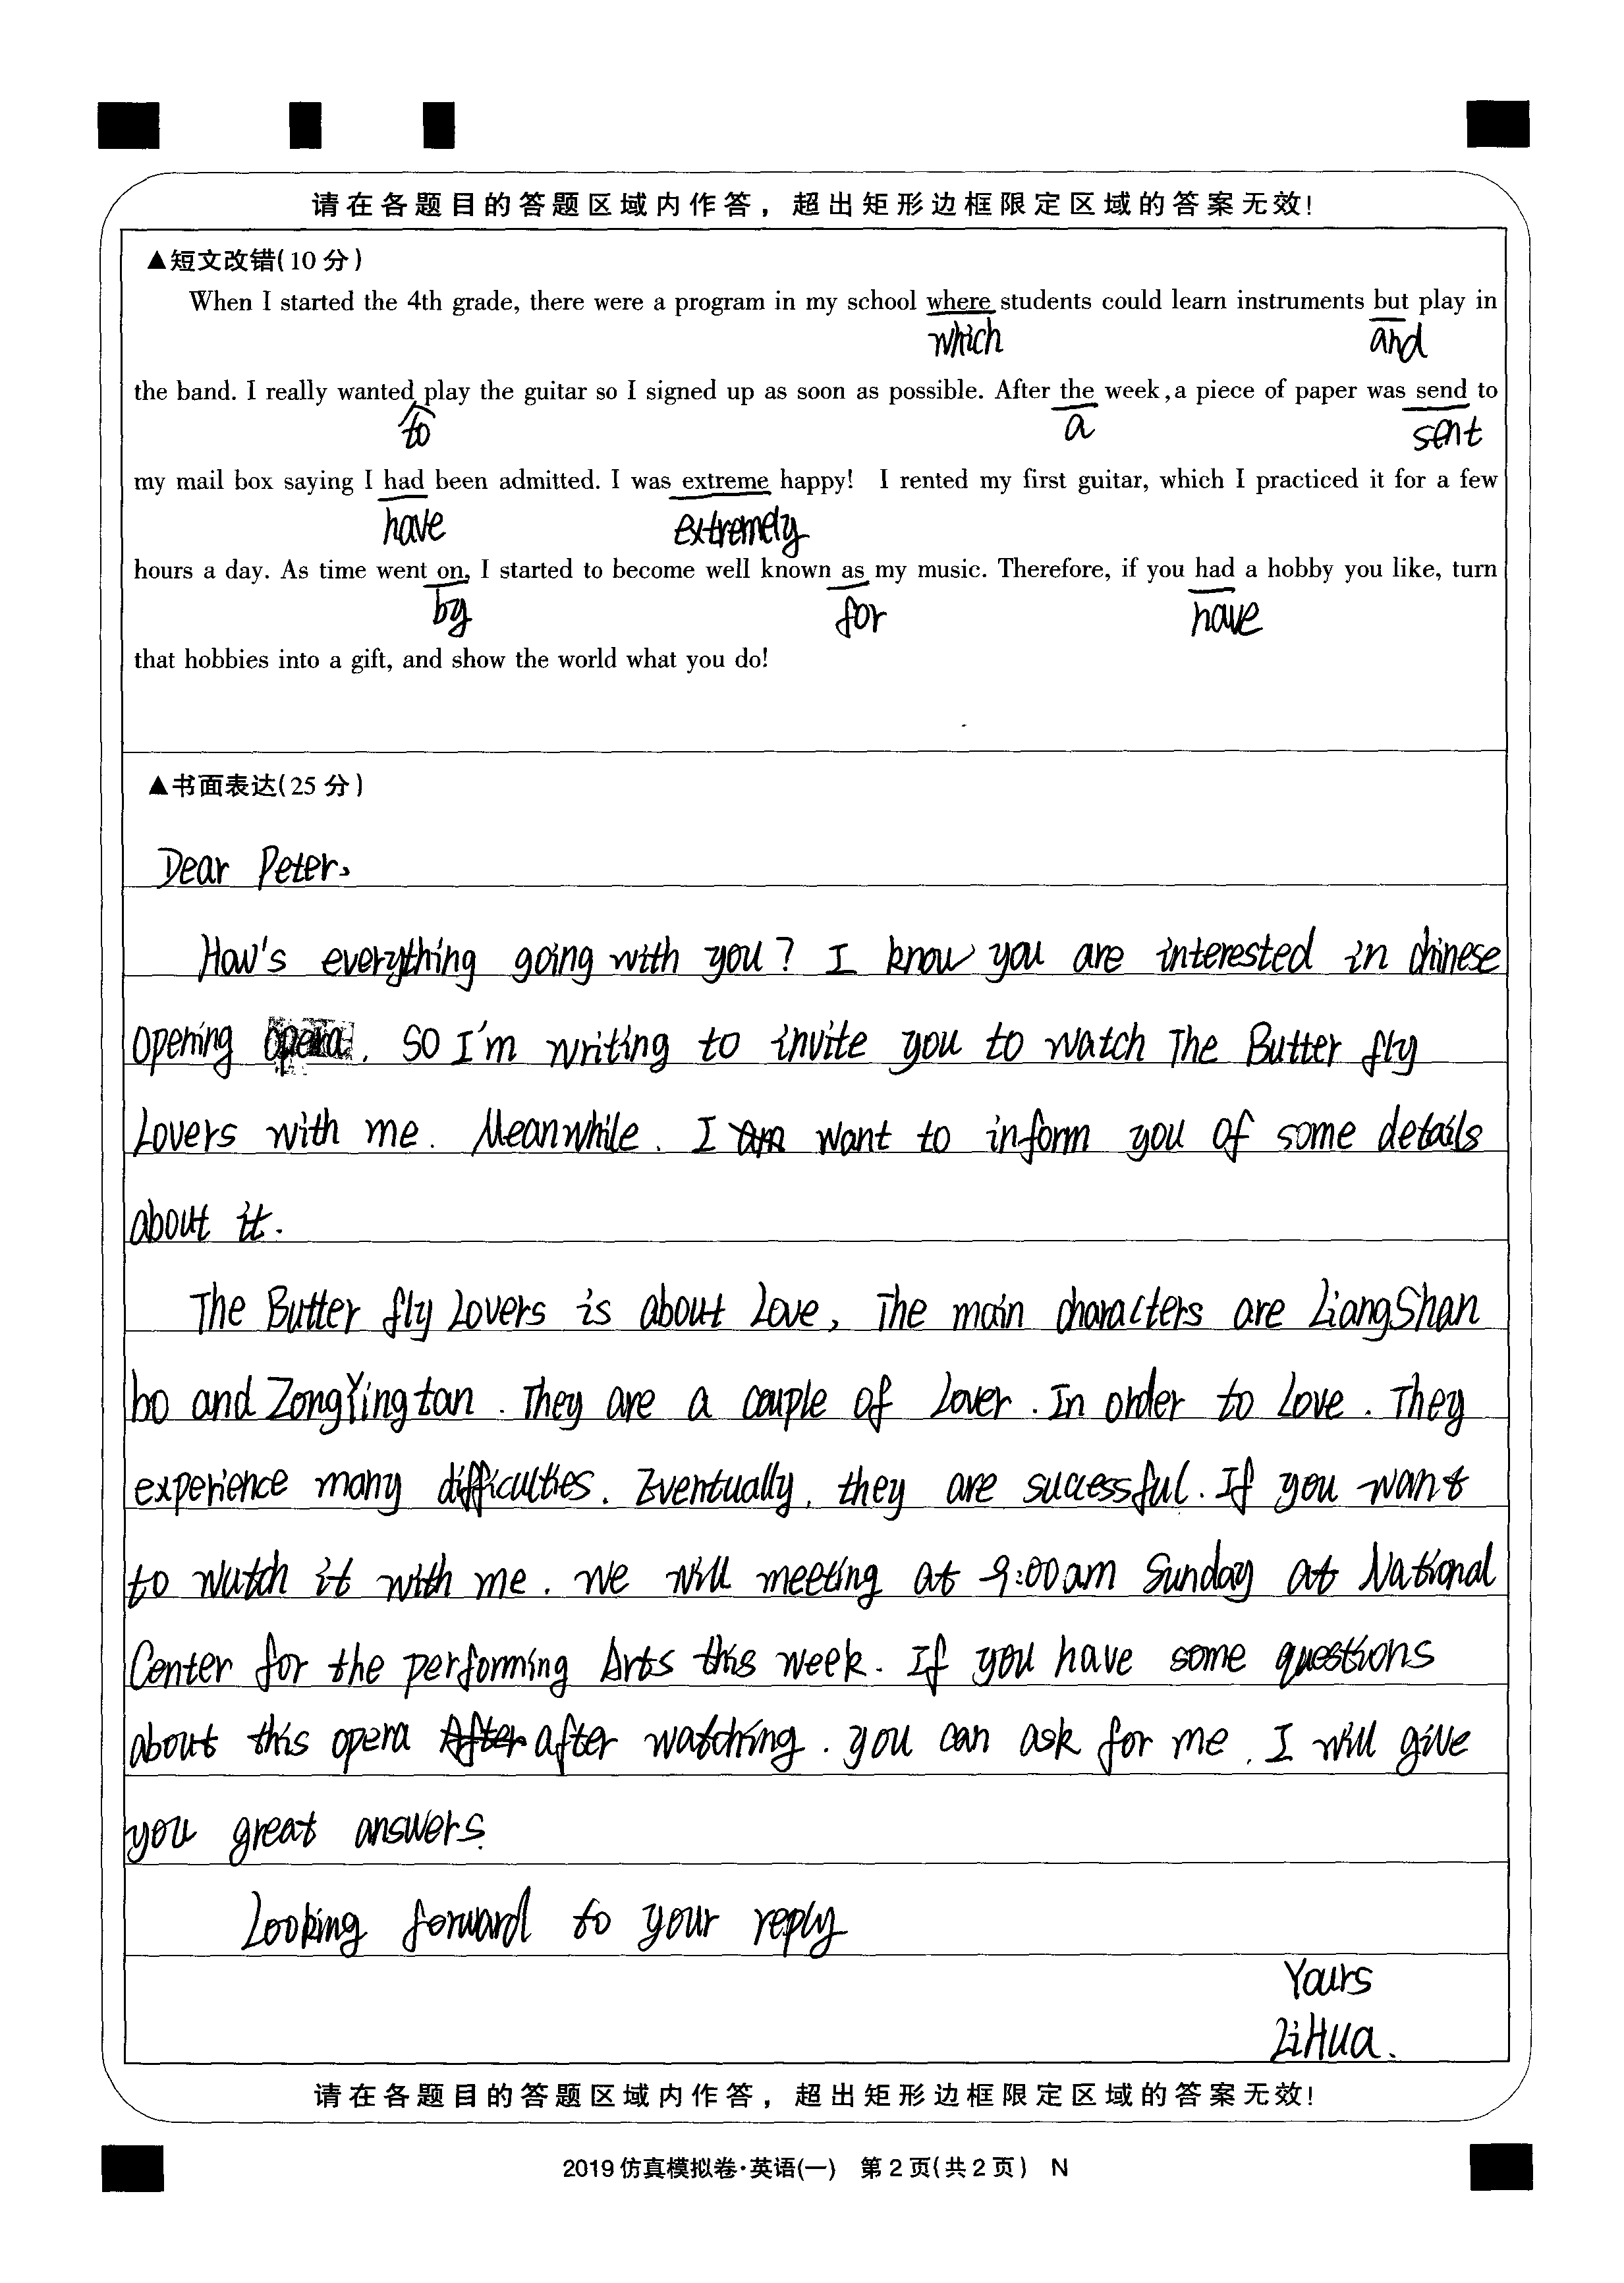 请在各题目的答题区域内作答，超出矩形边框限定区域的答案无效！
▲短文改错(10分)
When I started the 4th grade, there were a program in my school where students could learn instruments but play in
which and
the band. I really wanted play the guitar so I signed up as soon as possible. After the week, a piece of paper was send to
to a sent
my mail box saying I had been admitted. I was extreme happy! I rented my first guitar, which I practiced it for a few
have extremely
hours a day. As time went on, I started to become well known as my music. Therefore, if you had a hobby you like, turn
by for have
that hobbies into a gift, and show the world what you do!
▲书面表达(25分)
Dear Peter,
How's everything going with you? I know you are interested in chinese
opening opera. SO I'm writing to invite you to watch The Butter fly
Lovers with me. Meanwhile. I am want to inform you of some details
about it.
The Butter fly Lovers is about Love, The main characters are LiangShan
bo and ZongYing tan. They are a couple of Lover. In order to Love. They
experience many difficulties. Eventually, they are successful. If you want
to watch it with me. We will meeting at 9:00am Sunday at National
Center for the performing Arts this week. If you have some questions
about this opera After after watching. you can ask for me. I will give
you great answers.
Looking forward to your reply
Yours
LiHua.
请在各题目的答题区域内作答，超出矩形边框限定区域的答案无效！
2019仿真模拟卷·英语(一) 第2页(共2页) N